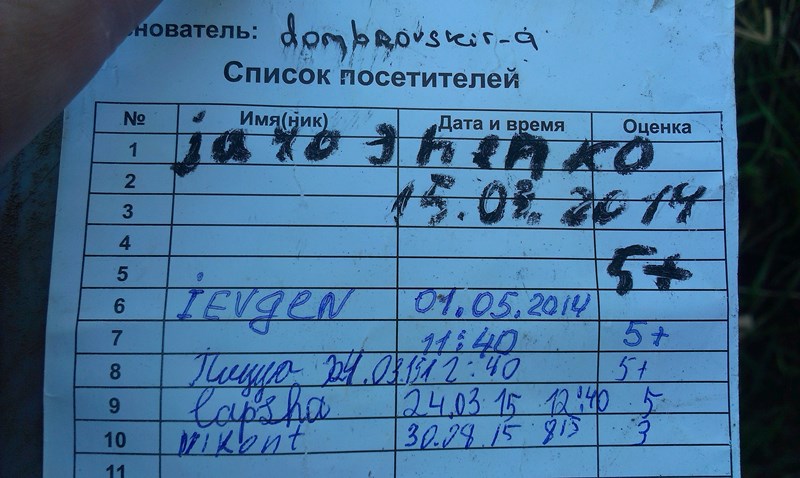 нователь: dombrovskir-a
Список посетителей
№ Имя(ник) Дата и время Оценка
1
2 15.03.2014
3
4
5 5+
6 IEVgEN 01.05.2014
7 11:40 5+
8 Пицца 24.03.15 12:40 5+
9 lapsha 24.03 15 12:40 5
10 Nikont 30.08.15 815 3
11